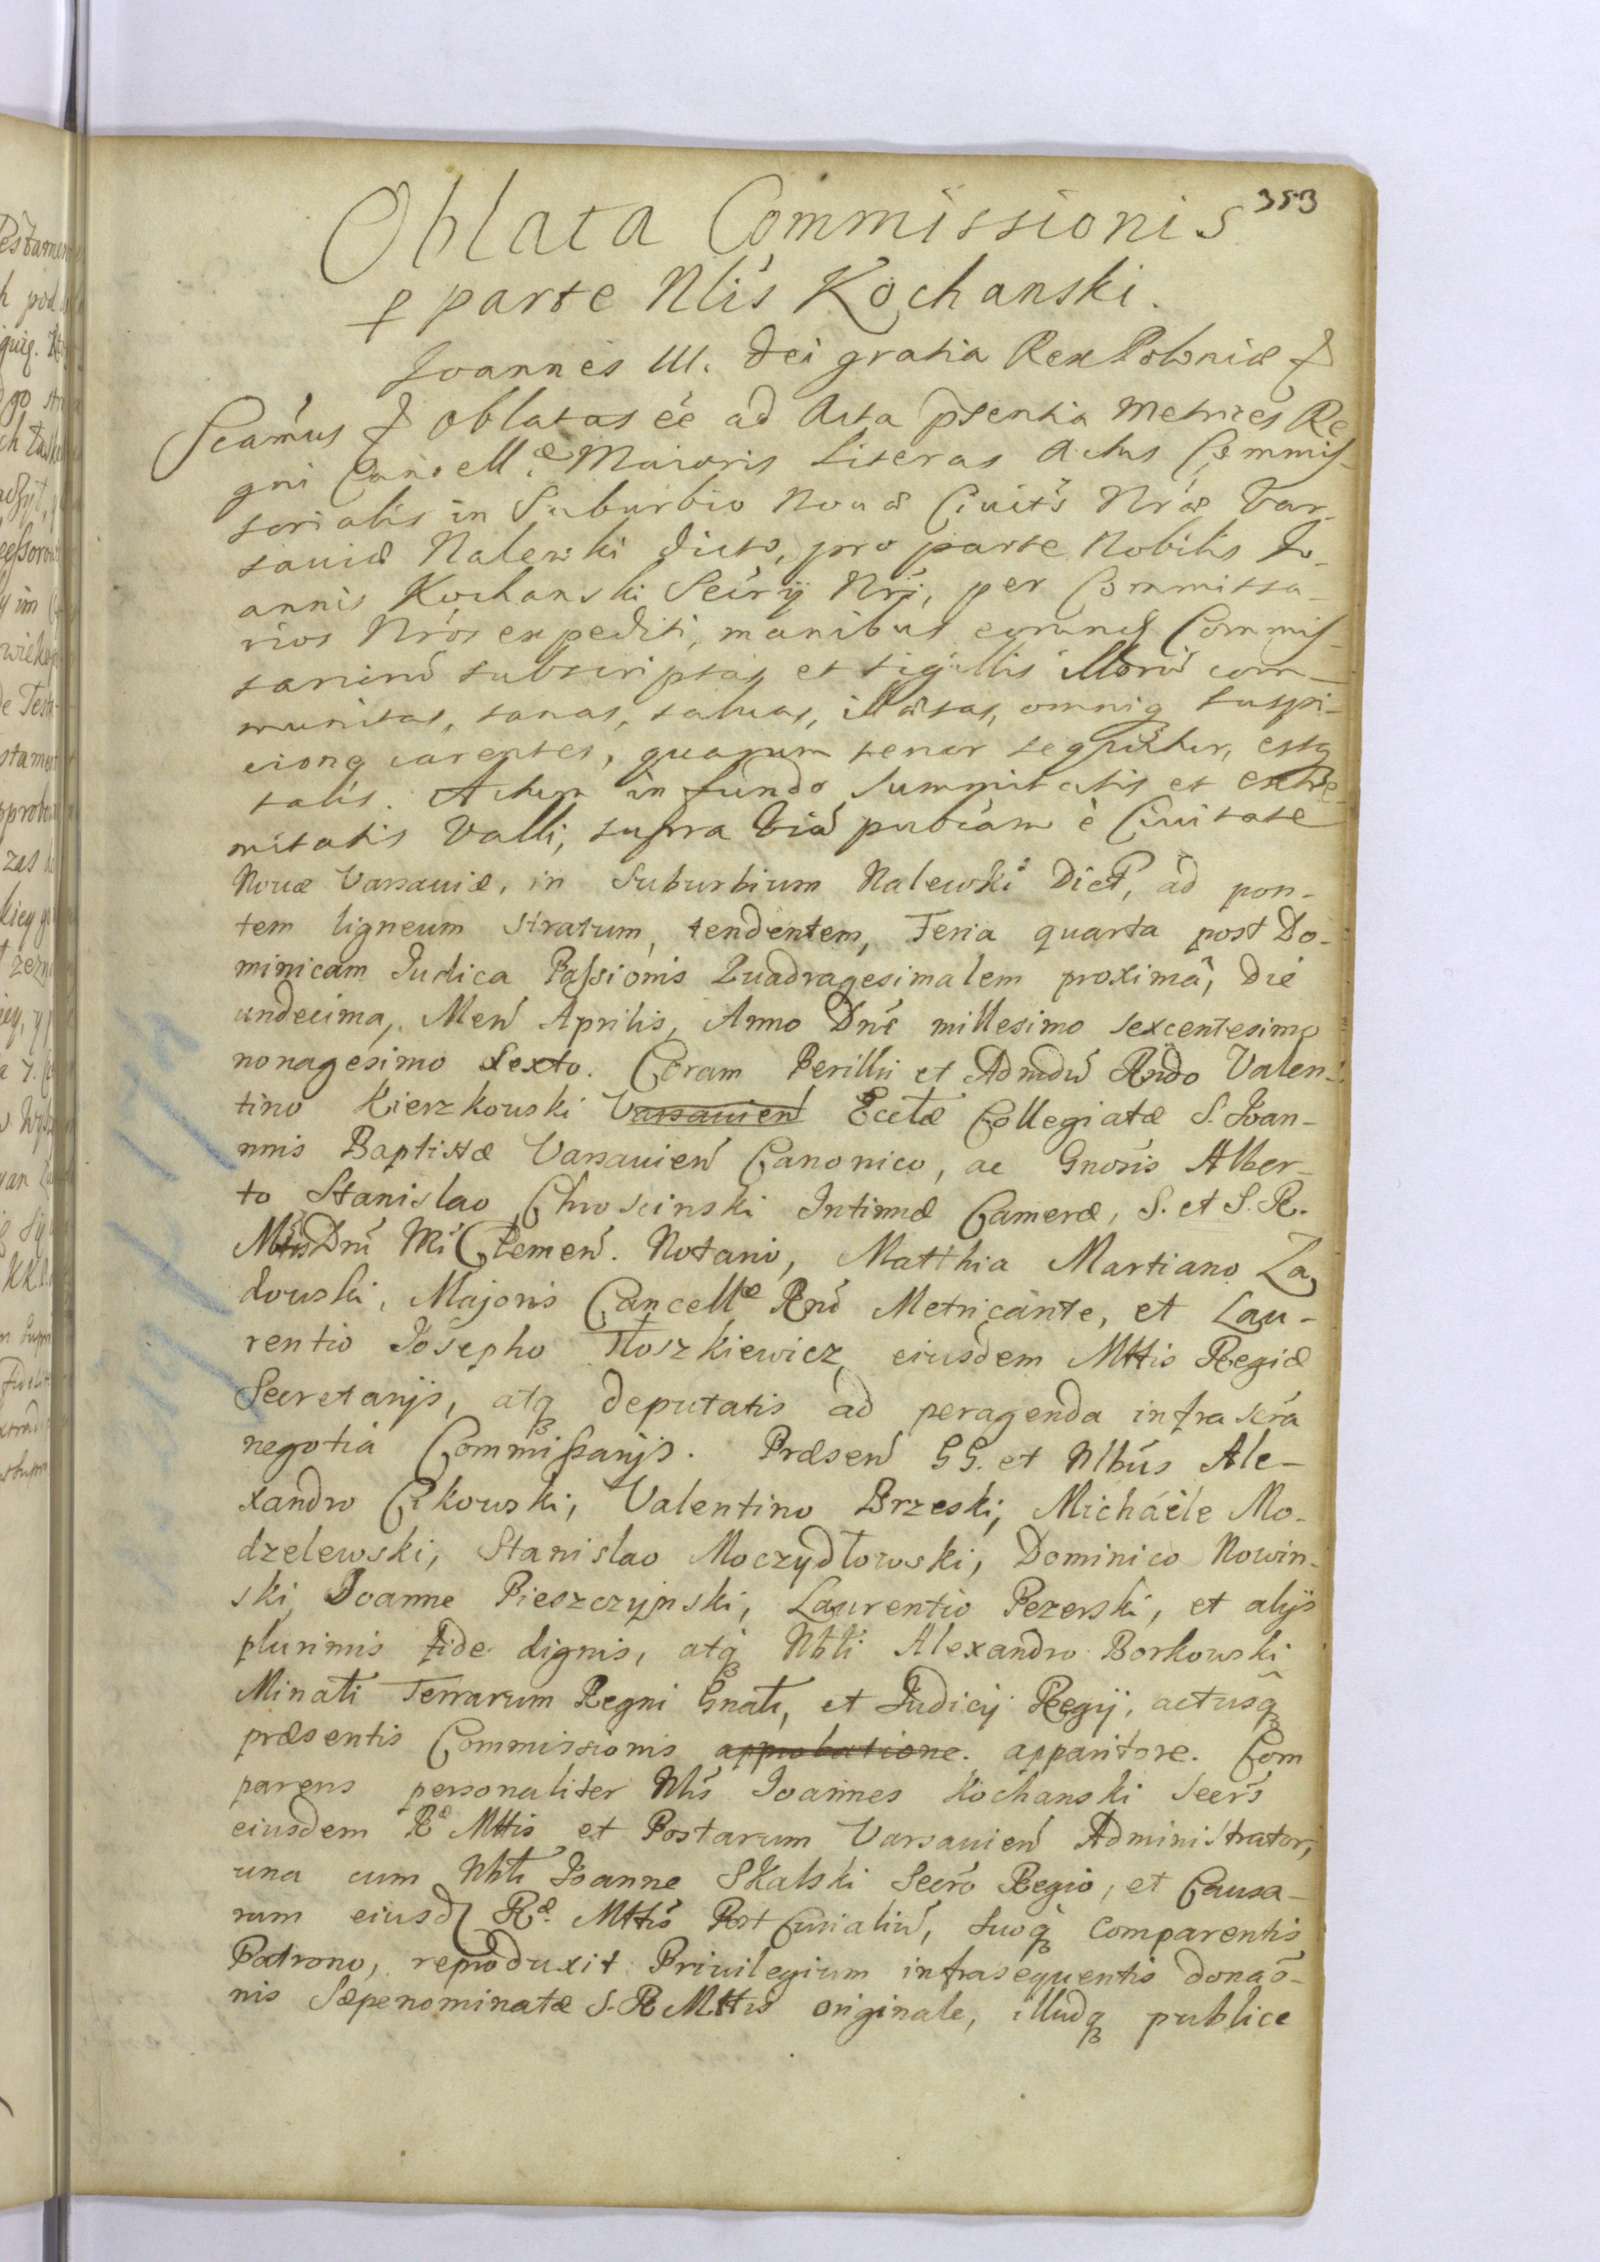 353
Oblata Commissionis
p parte Nlis Kochanski.
Joannes III. Dei gratia Rex Poloniæ &
Scamús & Oblatas éé ad Acta pñsentia Metrices Re
gni Cancellæ Maioris Literas Actus Commis-
sorialis in Suburbio Nouæ Ciuitis Nræ Var-
sauiæ Nalewki dicto, pro parte Nobilis Jo-
annis Kochanski Secrij Nri, per Commissa-
rios Nros expediti, manibus eorund Commis-
sariorũ subscriptas et sigillis illorũ com-
munitas, sanas, saluas, illæsas, omniq suspi-
cione carentes, quarum tenor sequitur, estq
talis. Actum in fundo summitatis et extre-
mitatis Valli, supra Viã pubcam è Ciuitate
Nouæ Varsauiæ, in Suburbium Nalewki Dict, ad pon-
tem ligneum stratum, tendentem, Feria quarta post Do-
minicam Judica Passionis Quadragesimalem proximã, die
undecima, Men Aprilis, Anno Dnĩ millesimo sexcentesimo
nonagesimo Sexto. Coram Perilli et Admdũ Rndo Valen-
tino Kierzkowski Varsauien Ecclæ Collegiatæ S. Joan-
nnis Baptistæ Varsauien Canonico, ac Gnosis Alber-
to Stanislao Chroscinski Intimæ Cameræ, S. et S. R.
Mttis Dni Mi Clemen. Notario, Matthia Martiano Za
dowski, Majoris Cancellæ Rni Metricante, et Lau-
rentio Josepho Tłoszkiewicz eiusdem Mttis Regiæ
Secretarijs, atq deputatis ad peragenda infra scra
negotia Commissarijs. Præsen GG. et Nlbus Ale-
xandro Cikowski, Valentino Brzeski, Michaële Mo-
dzelewski, Stanislao Moczydłowski, Dominico Nowin-
ski, Joanne Pieszczynski, Laurentio Pezerski, et alijs
plurimis fide dignis, atq Nbli Alexandro Borkowski
Minali Terrarum Regni Gnali, et Judicij Regij, actusq
præsentis Commissionis approbatione. apparitore. Com
parens personaliter Nlis Joannes Kochanski Secrs
eiusdem Ræ Mttis et Postarum Varsauien Administrator,
una cum Nbli Joanne Skalski Secro Regio, et Causa-
rum eiusd Ræ. Mttis Post Curialiũ, suoq comparentis
Patrono, reproduxit Priuilegium infrasequentis donao-
nis Sæpenominatæ S. R Mttis originale, illudq publice